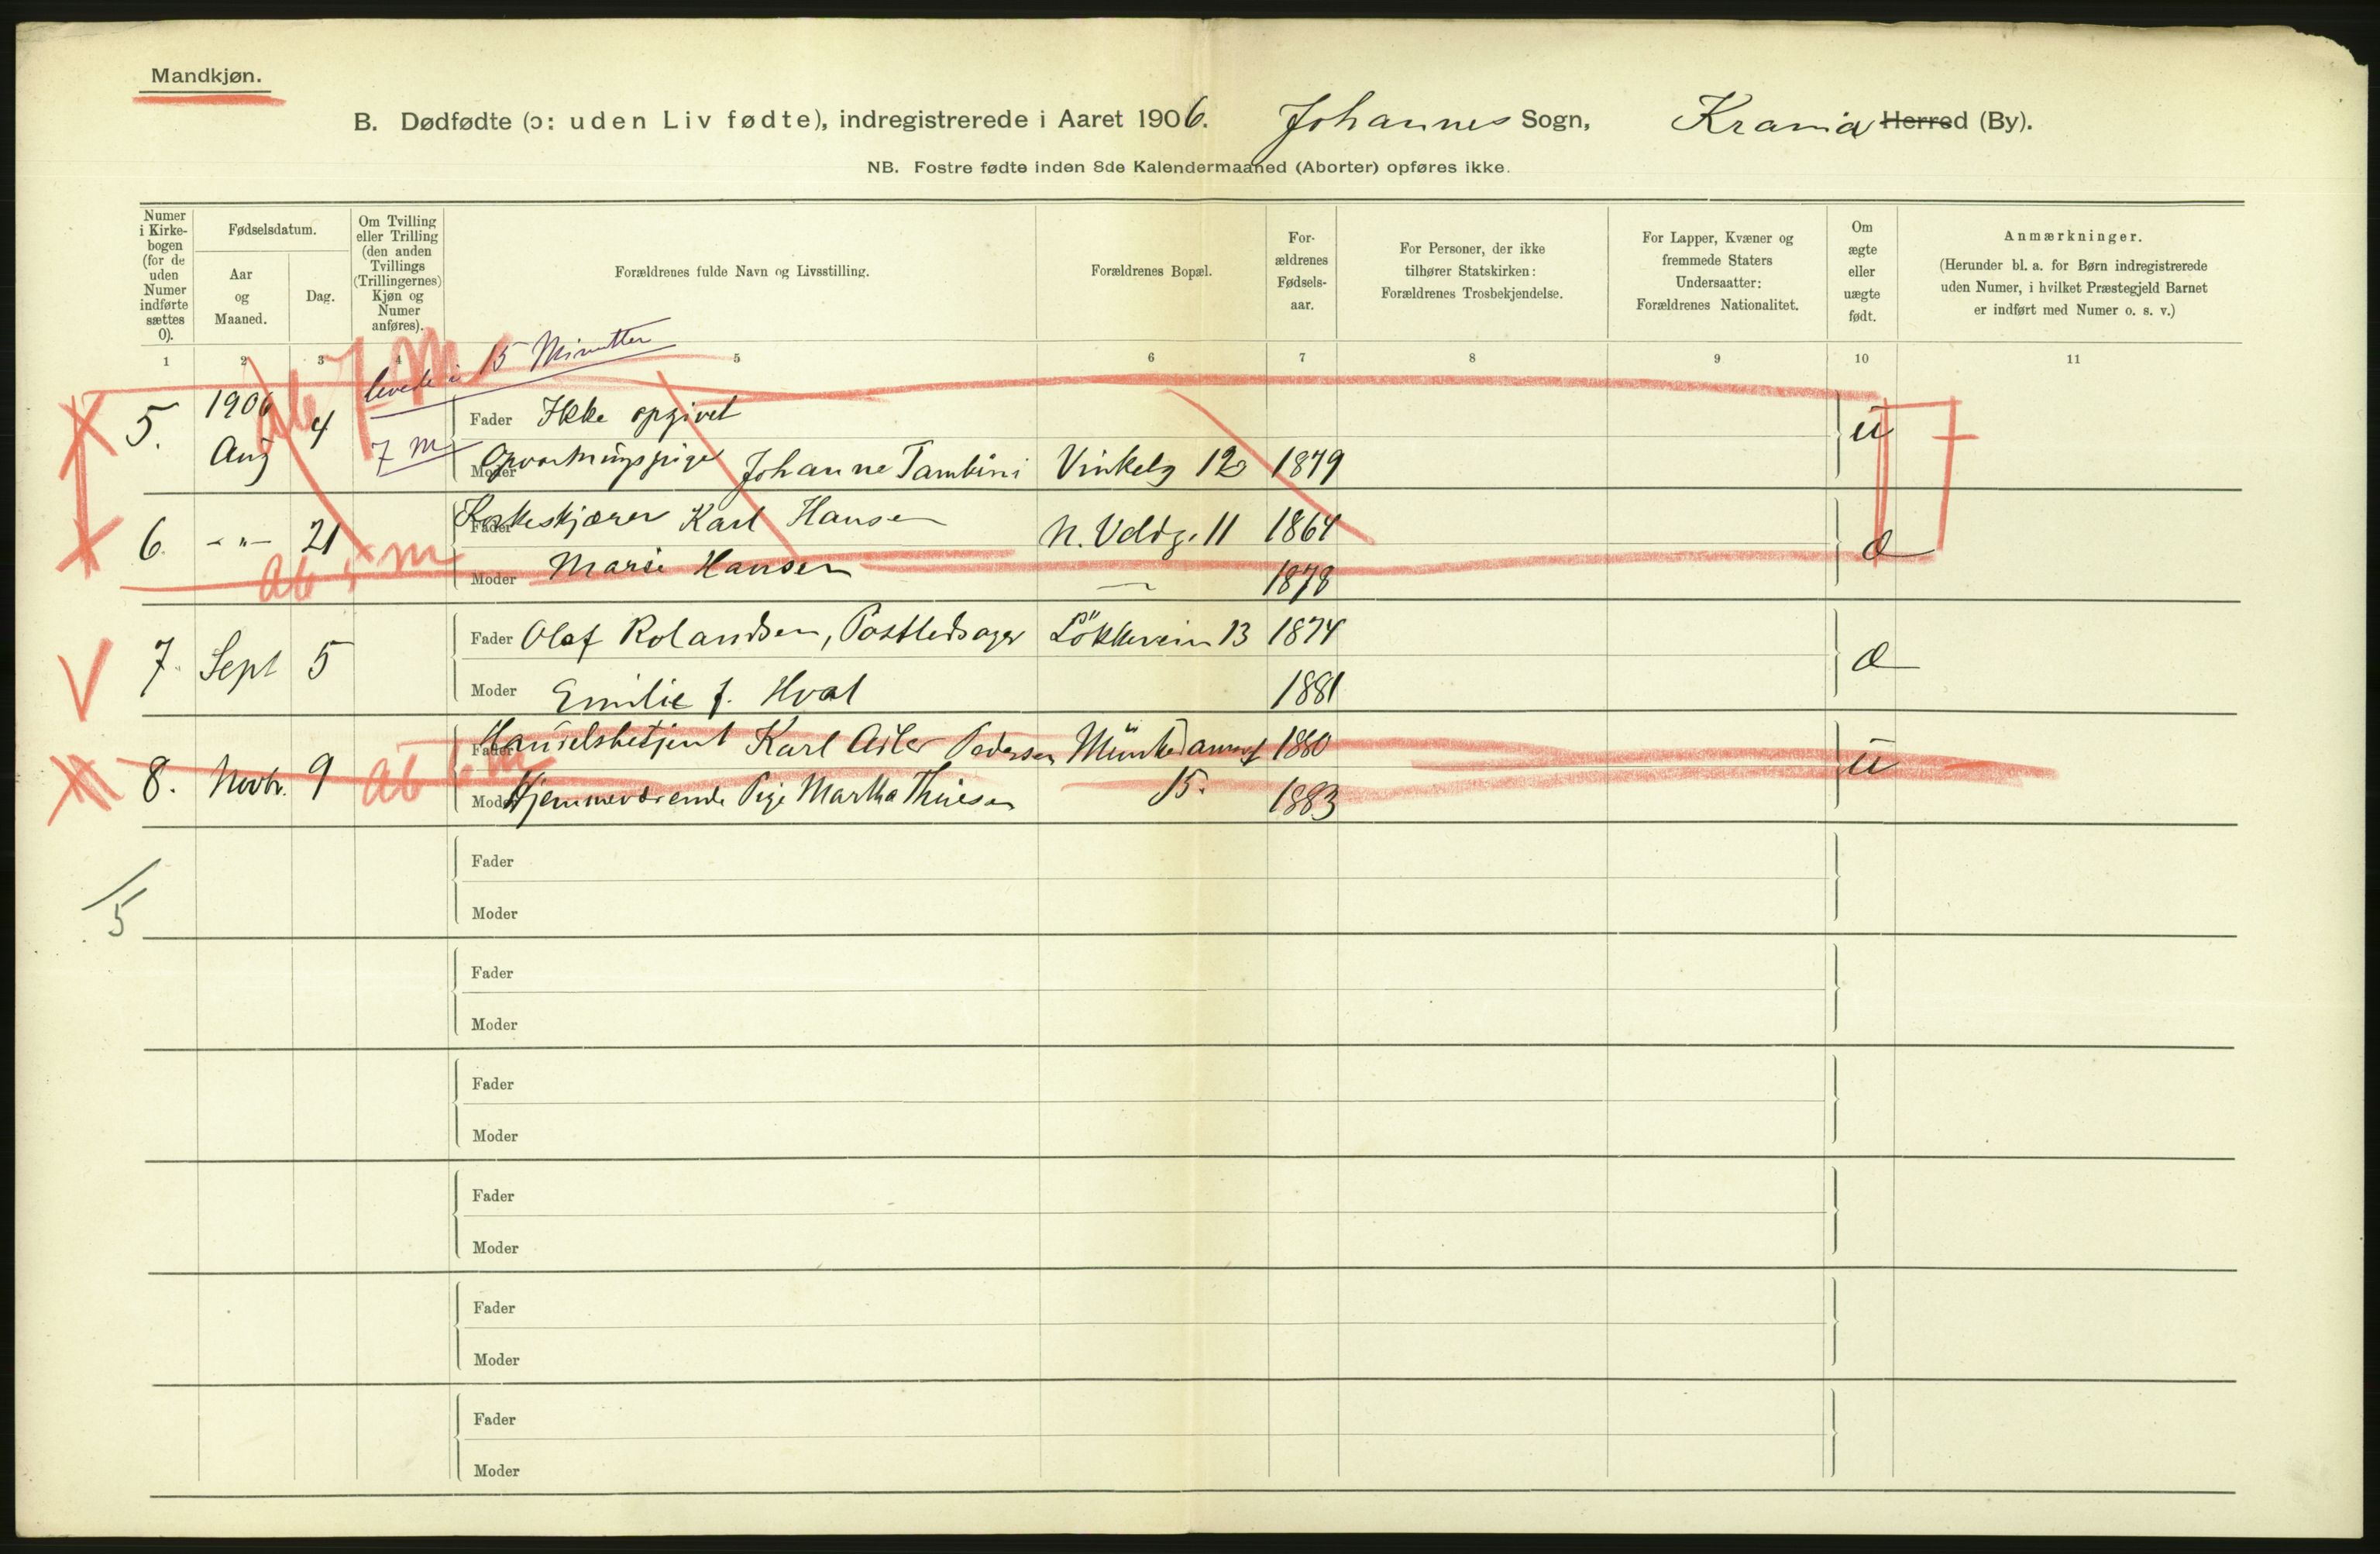 Mandkjøn.
B. Dødfødte (ɔ: uden Liv fødte), indregistrerede i Aaret 1906. Johannes Sogn, Krania Herred (By).
NB. Fostre fødte inden 8de Kalendermaaned (Aborter) opføres ikke.
Numer i Kirkebogen (for de uden Numer indførte sættes 0).
Fødselsdatum.
Aar og Maaned.
Dag.
Om Tvilling eller Trilling (den anden Tvillings (Trillingernes) Kjøn og Numer anføres).
Forældrenes fulde Navn og Livsstilling.
Forældrenes Bopæl.
Forældrenes Fødselsaar.
For Personer, der ikke tilhører Statskirken: Forældrenes Trosbekjendelse.
For Lapper, Kvæner og fremmede Staters Undersaatter: Forældrenes Nationalitet.
Om ægte eller uægte født.
Anmærkninger.
(Herunder bl. a. for Børn indregistrerede uden Numer, i hvilket Præstegjeld Barnet er indført med Numer o. s. v.)
1 2 3 4 5 6 7 8 9 10 11
levede i 15 Minutter
ab 7 m
5. 1906 Aug 4 7 m
Fader Ikke opgivet ü
Moder Opvartningspige Johanne Tambini Vinkelg 12 1879
6. - " - 21
Fader Korkeskjærer Karl Hansen N. Vdldg. 11 1864 æ
Moder Marie Hansen — 1878
ab m
7. Sept 5
Fader Olaf Rolandsen, Postledsager Lökkevein 13 1874 æ
Moder Emilie f. Hval 1881
8. Novbr. 9 ab m
Fader Handelsbetjent Karl Pedersen 1880 ü
Moder Hjemmeværende Pige Martha 15. 1883
5
Fader
Moder
Fader
Moder
Fader
Moder
Fader
Moder
Fader
Moder
Fader
Moder